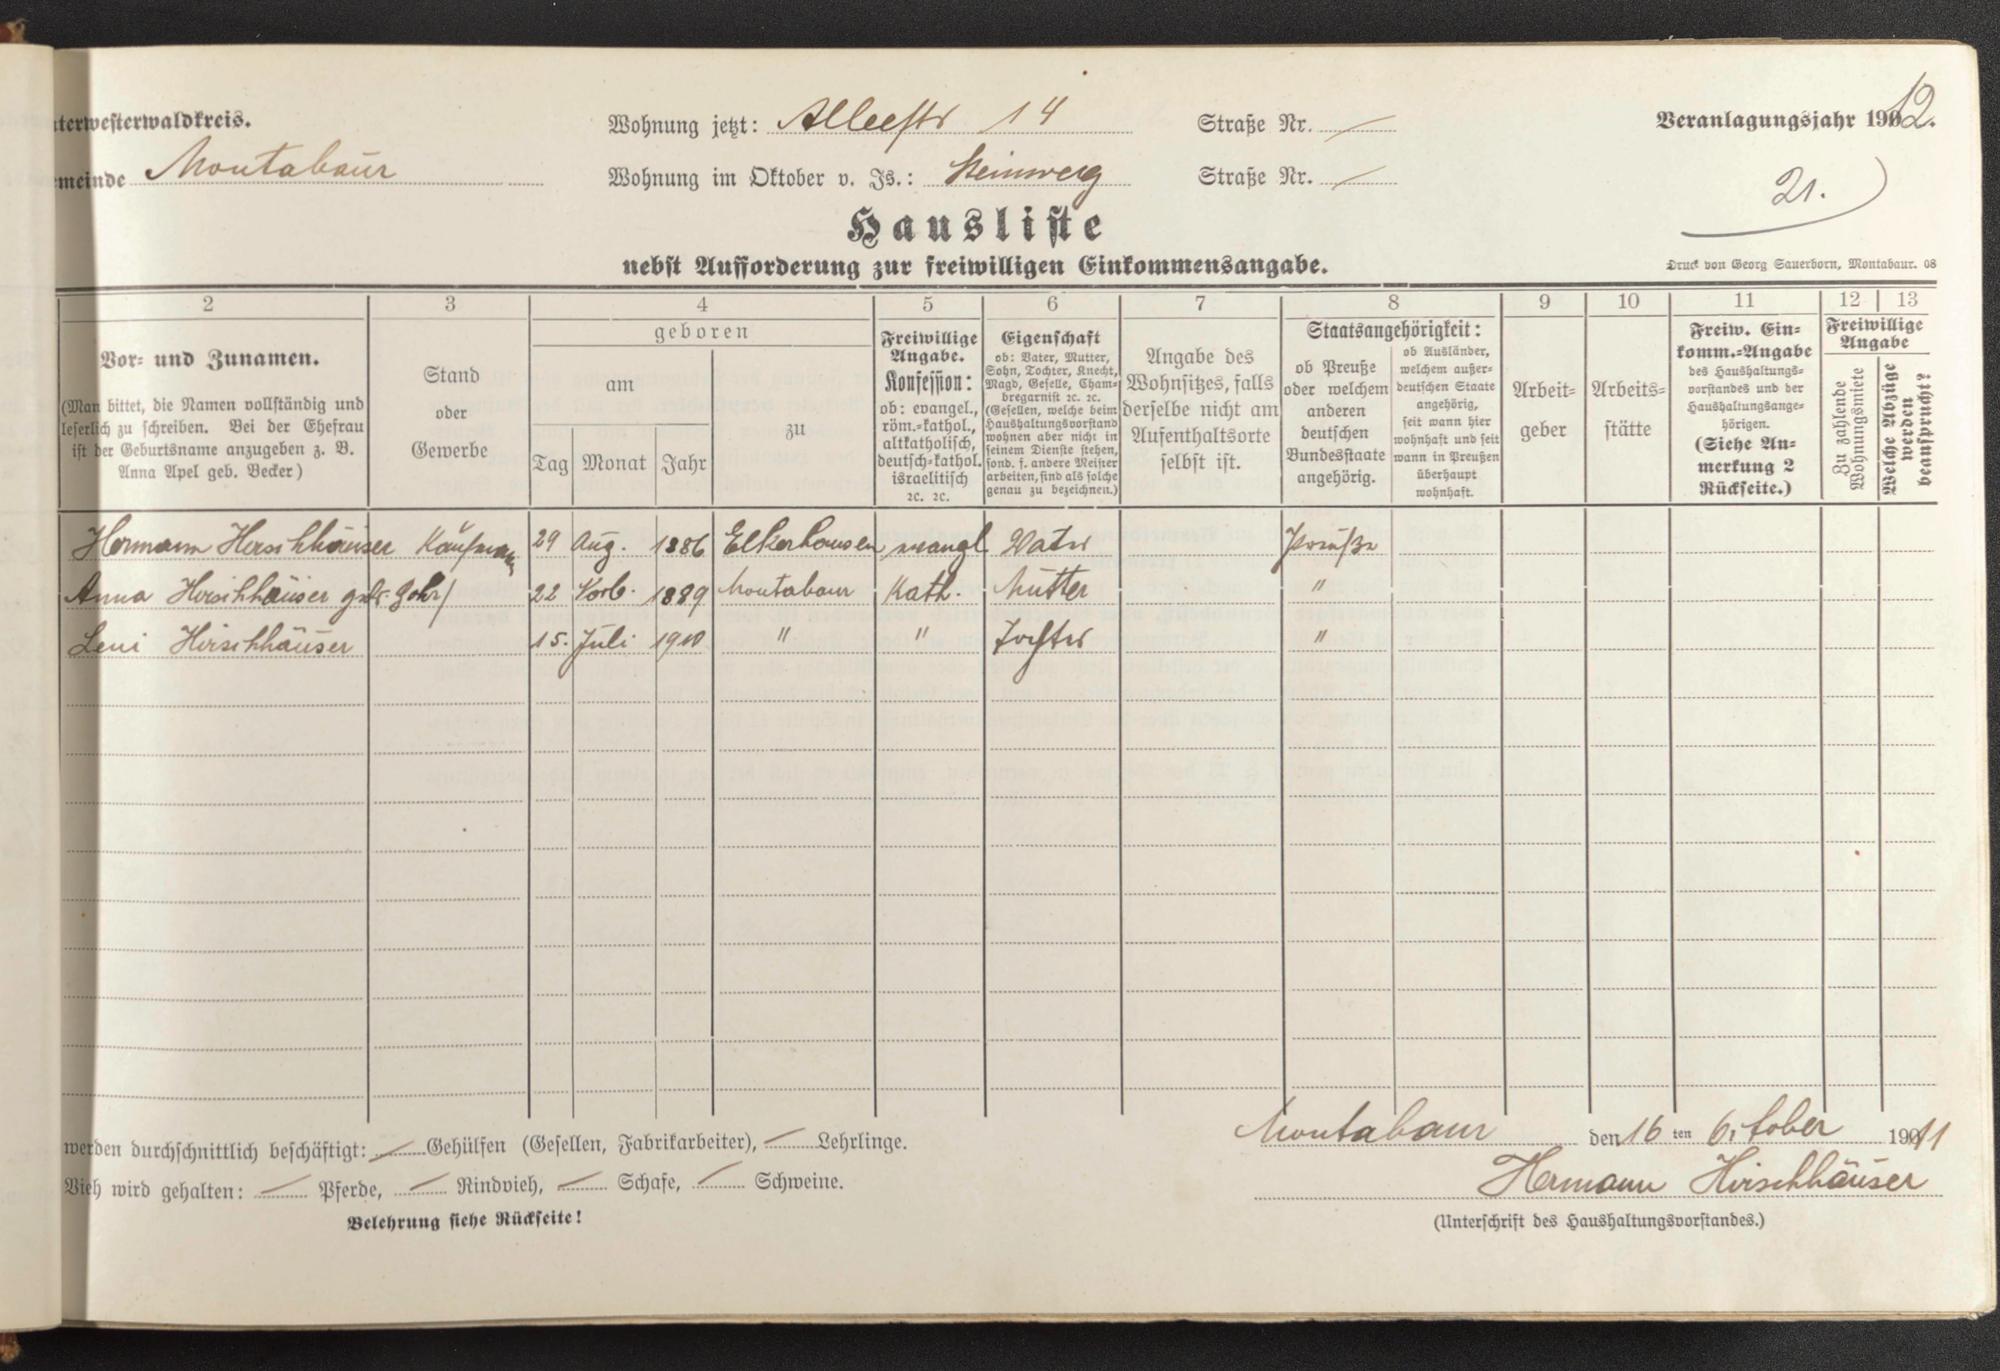 nterwesterwaldkreis.
Wohnung jetzt: Alleestr 14 Straße Nr.
Veranlagungsjahr 1912.
meinde Montabaur
Wohnung im Oktober v. Js.: Steinweg Straße Nr.
21.
Hausliste
nebst Aufforderung zur freiwilligen Einkommensangabe.
Druck von Georg Sauerborn, Montabaur. 08
2 3 4 5 6 7 8 9 10 11 12 13
Vor- und Zunamen.
(Man bittet, die Namen vollständig und
leserlich zu schreiben. Bei der Ehefrau
ist der Geburtsname anzugeben z. B.
Anna Apel geb. Becker)
Stand
oder
Gewerbe
geboren
am
Tag Monat Jahr
zu
Freiwillige
Angabe.
Konfession:
ob: evangel.,
röm.-kathol.,
altkatholisch,
deutsch-kathol.
israelitisch
ꝛc. ꝛc.
Eigenschaft
ob: Vater, Mutter,
Sohn, Tochter, Knecht,
Magd, Geselle, Cham-
bregarnist ꝛc. ꝛc.
(Gesellen, welche beim
Haushaltungsvorstand
wohnen aber nicht in
seinem Dienste stehen,
sond. f. andere Meister
arbeiten, sind als solche
genau zu bezeichnen.)
Angabe des
Wohnsitzes, falls
derselbe nicht am
Aufenthaltsorte
selbst ist.
Staatsangehörigkeit:
ob Preuße
oder welchem
anderen
deutschen
Bundesstaate
angehörig.
ob Ausländer,
welchem außer-
deutschen Staate
angehörig,
seit wann hier
wohnhaft und seit
wann in Preußen
überhaupt
wohnhaft.
Arbeit-
geber
Arbeits-
stätte
Freiw. Ein-
komm.-Angabe
des Haushaltungs-
vorstandes und der
Haushaltungsange-
hörigen.
(Siehe An-
merkung 2
Rückseite.)
Freiwillige
Angabe
Zu zahlende
Wohnungsmiete
Welche Abzüge
werden
beansprucht?
Hermann Hirschhäuser Kaufmann 29 Aug. 1886 Elkerhausen evangl. Vater Preuße
Anna Hirschhäuser geb. Gohr 22 1889 Montabaur Kath. Mutter "
Leni Hirschhäuser 15. Juli 1910 " " Tochter "
werden durchschnittlich beschäftigt: Gehülfen (Gesellen, Fabrikarbeiter), Lehrlinge.
Montabaur den 16 ten October 1911
Vieh wird gehalten: Pferde, Rindvieh, Schafe, Schweine.
Hermann Hirschhäuser
Belehrung siehe Rückseite!
(Unterschrift des Haushaltungsvorstandes.)